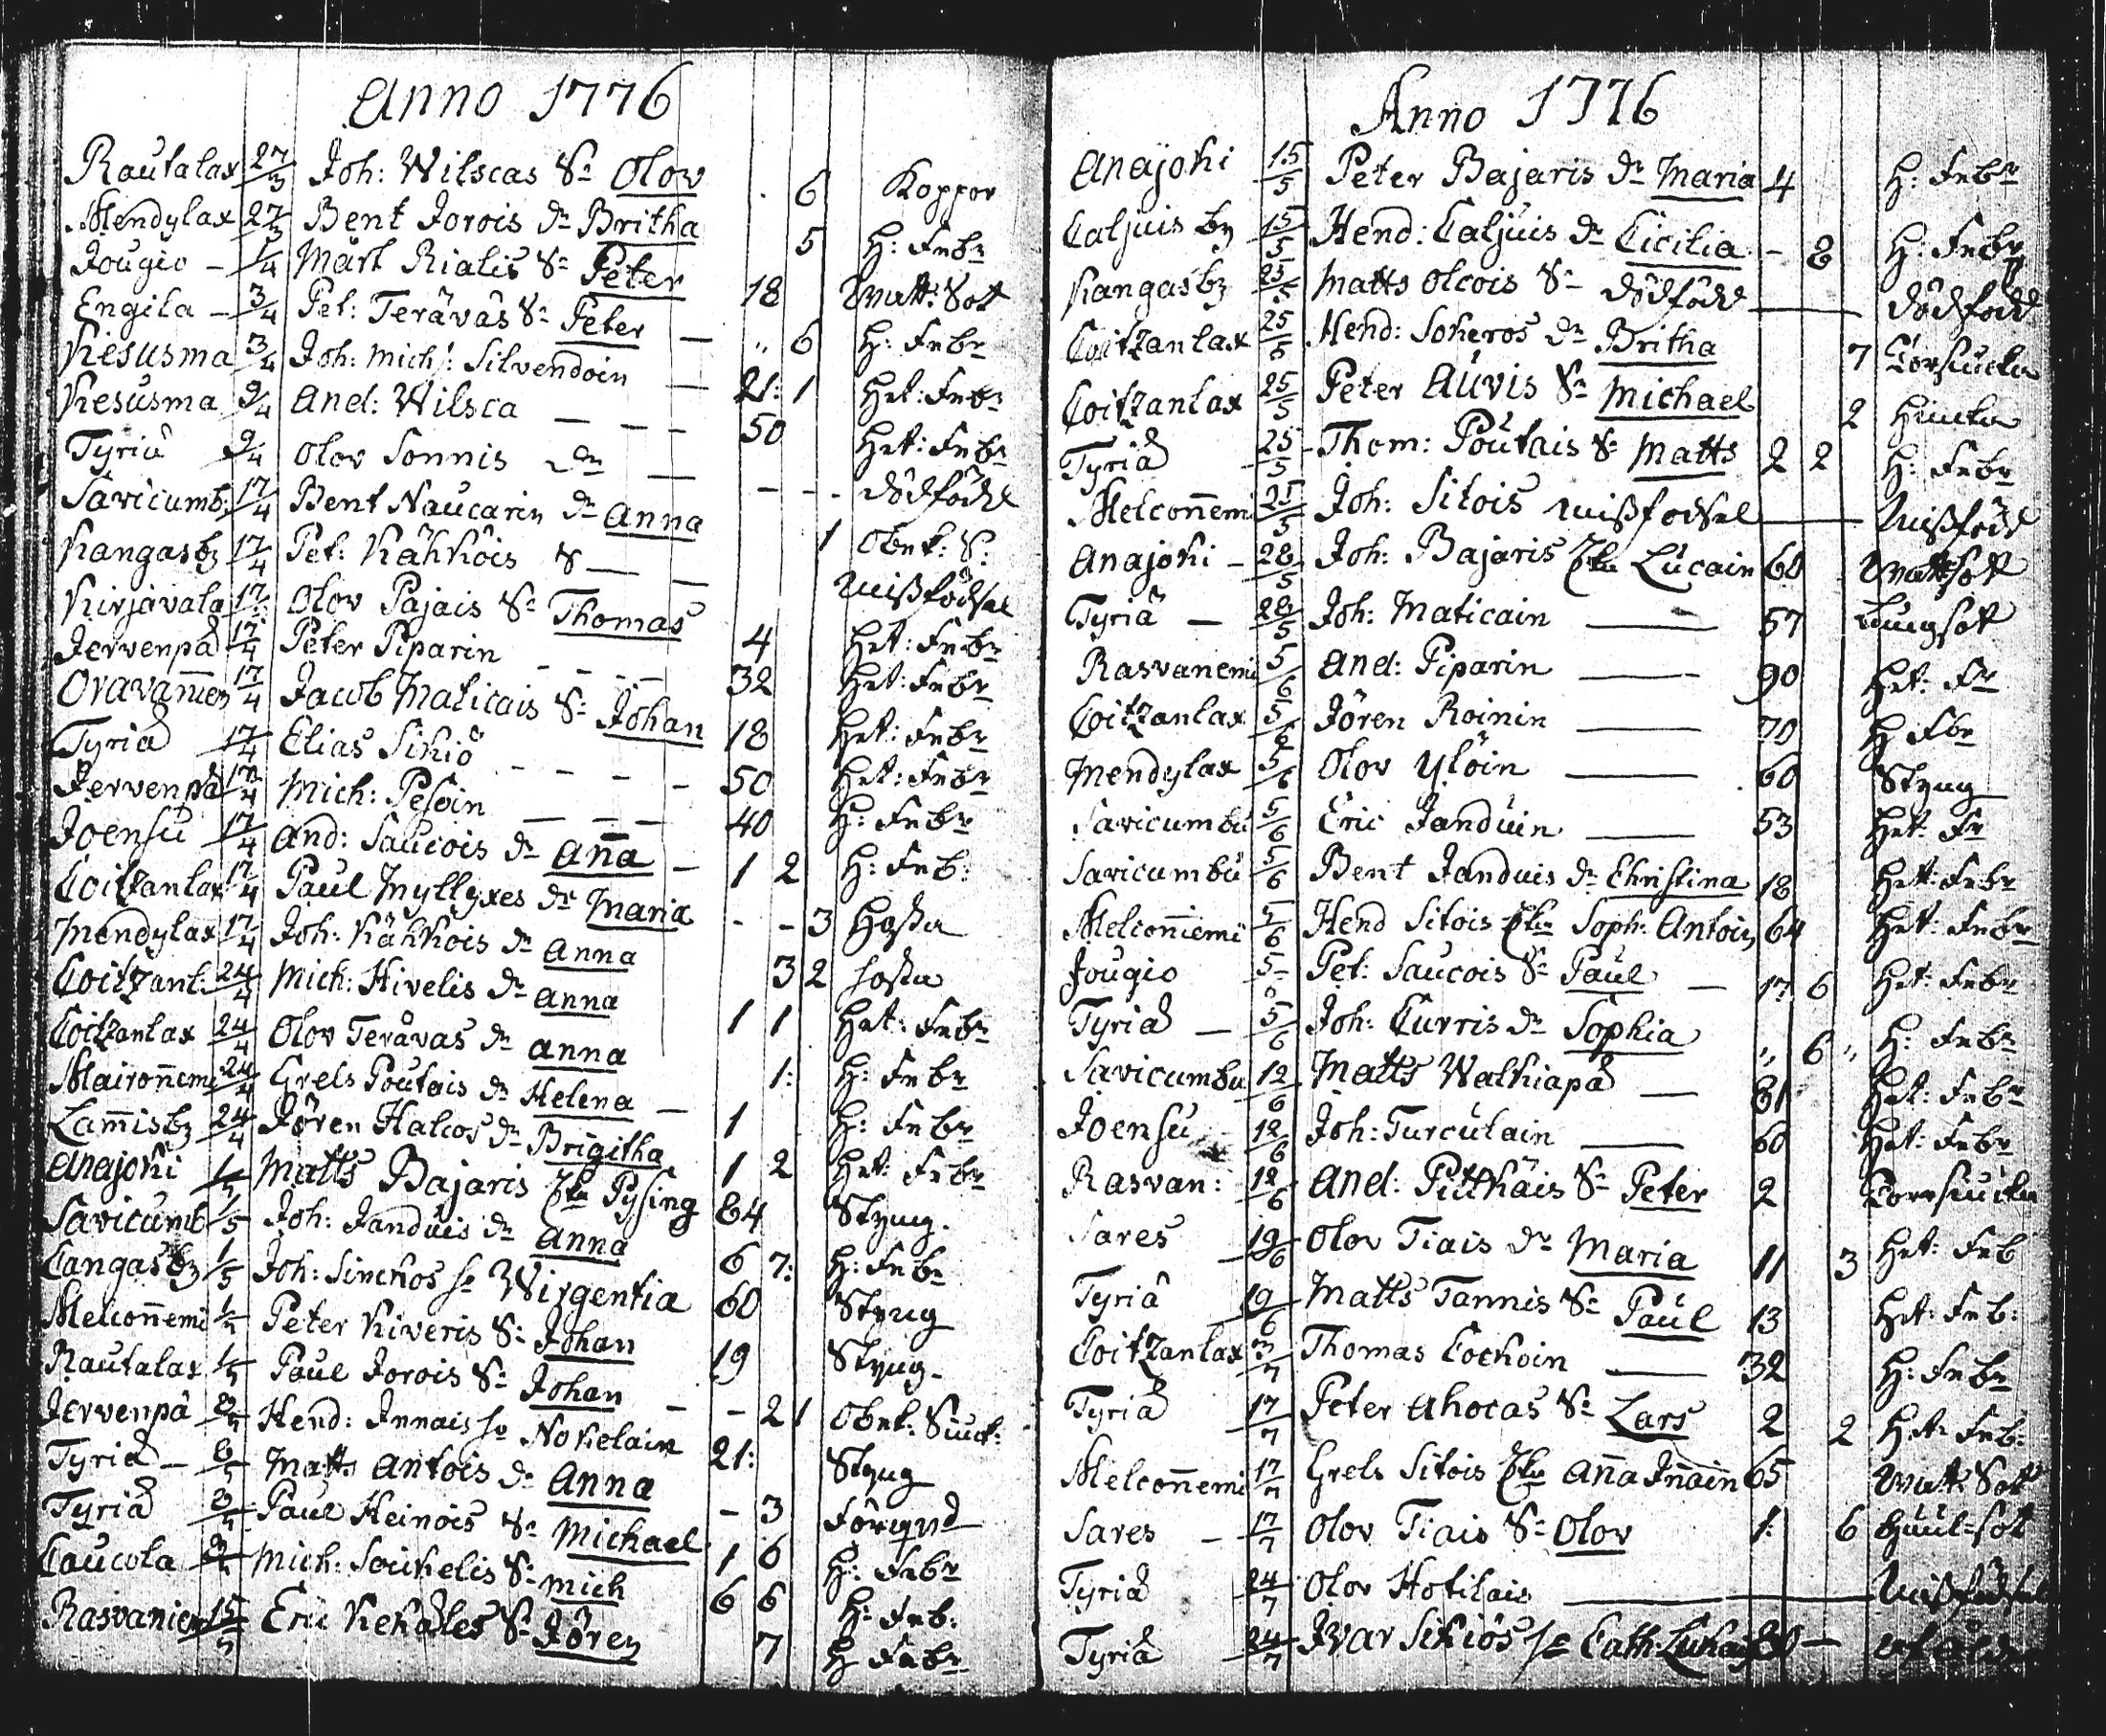 Anno 1776
Rautalax 27/3 Joh: Wilscas S: Olov . 6 Koppor
Mendylax 27/3 Bent Jorois dr Britha 5 H: Febr
Jougio – 1/4 Mårt Rialis S: Peter 18 Watt: Sot
Engila – 3/4 Pet: Teräväs S: Peter — „ 6 H: Febr
Kesusma 3/4 Joh: Mich: Silvendoin — 21: 1 Het: Febr
Kesusma 9/4 And: Wilsca — — — 50 Het: Febr
Tyriä 9/4 Olov Sonnis dr — – – - dödfödd
Savicumb: 17/4 Bent Naucarin dr Anna 1 Obek: S:
Kangasby 17/4 Pet: Kähköis S — — Missfödsel
Kirjavala 17/4 Olov Pajais S: Thomas 4 Het: Febr
Jervenpä 17/4 Peter Piparin - - - - 32 Het: Febr
Oravaniem 17/4 Jacob Maticais S: Johan 18 Het: Febr
Tyriä 17/4 Elias Sikiö - - - - 50 Het: Febr
Jervenpä 17/4 Mich: Pesoin — — — 40 H: Febr
Joensu 17/4 And: Saucois dr Ana — 1 2 H: Feb:
Coitzanlax 17/4 Paul Myllyxes dr Maria - - 3 Hosta
Mendylax 17/4 Joh: Kähkois dr Anna 3 2 hosta
Coitzanl: 24/4 Mich: Hivelis dr Anna 1 1 Het: Febr
Coitzanlax 24/4 Olov Terävas dr Anna 1: H: Febr
Maironnemi 24/4 Grels Poutais dr Helena — 1 H: Febr
Lamisby 24/4 Jören Halcos dr Brigitha 1 2 Het: Febr
Anajoki 1/5 Matts Bajaris Pysing 84 Styng.
Savicumb 1/5 Joh: Janduis dr Anna 6 7: H: Febr
Cangasby 1/5 Joh: Sinckos Wirgentia 60 Styng
Melconnemi 1/5 Peter Kiveris S: Johan 19 Styng.
Rautalax 1/5 Paul Jorois S: Johan - - 2 1 Obek: Siuck:
Jervenpä Hend: Innais Nokelain 21: Styng
Tyriä — Matts Antois dr Anna - 3
Tyriä Paul Heinois S: Michael 1 6 H: Febr
Caucola Mich: Soikelis S: Mich 6 6 H: Feb:
Rasvaniem 15/5 Eric Kekäles S: Jören 7 H Febr
Anno 1776
Anajoki 15/5 Peter Bajaris dr Maria 4 H: Febr
Caljuis by 15/5 Hend: Caljuis dr Cicilia - 8 H: Febr
Kangasby 25/5 Matts Olcois S: dödfödd — dödfödd
Coitzanlax 25/5 Hend: Sokeros dr Britha 7 Torrsiucka
Coitzanlax 25/5 Peter Auvis S: Michael 2
Tyriä 25/5 Thom: Poutais S: Matts 2 2 H: Febr
Melconnemi 25/5 Joh: Sitois missfodsel — Missföds
Anajoki – 28/5 Joh: Bajaris Lucain 60 Wattsot
Tyriä — 28/5 Joh: Maticain — 57 Lungsot
Rasvanemi 5/6 And: Piparin — 90 Het: Fr
Coitzanlax 5/6 Jören Roinin — 70 H Fbr
Mendylax 5/6 Olov Ylöin — 60 Styng
Savicumbu 5/6 Eric Janduin — 53 Het: Fr
Savicumbu 5/6 Bent Janduis dr Christina 18 Het: Febr
Melconiemi 5/6 Hend Sitois Soph: Antoin 64 Het: Febr
Jougio 5 Pet: Saucois S: Paul — 17 6 Het: Febr
Tyriä — 5/6 Joh: Curris dr Sophia „ 6 „ H: Febr
Savicumbu 12/6 Matts Walkiapä — 81 Het: Febr
Joensu 12/6 Joh: Turculain — 60 Het: Febr
Rasvan: 12/6 And: Pitkäis S: Peter 2 Torrsiucka
Sares 19/6 Olov Tiais dr Maria 11 3 Het: Feb
Tyriä 19/6 Matts Tannis S: Paul 13 Het: Feb:
Coitzanlax 3/7 Thomas Cockoin — 32 H: Febr
Tyriä 17/7 Peter Ahocas S: Lars 2 2 Het: Feb:
Melconnemi 17/7 Grels Sitois Ana Inain 65 Watt: Sot
Sares – 17/7 Olov Tiais S: Olov 1: 6 Guul=sot
Tyriä 24/7 Olov Hotilais — Missfödsel
Tyriä 24/7 Ivar Sikiös Cath: